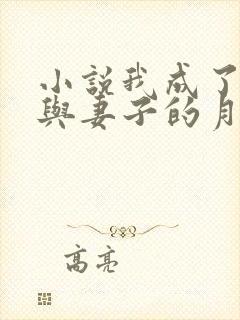 小說我成了
與妻子的月
高亮